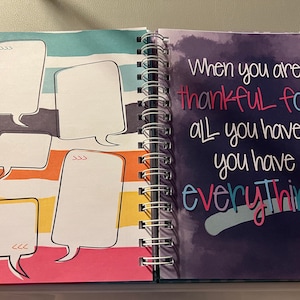 When you are
thankful fo
all you have
you have
everythin